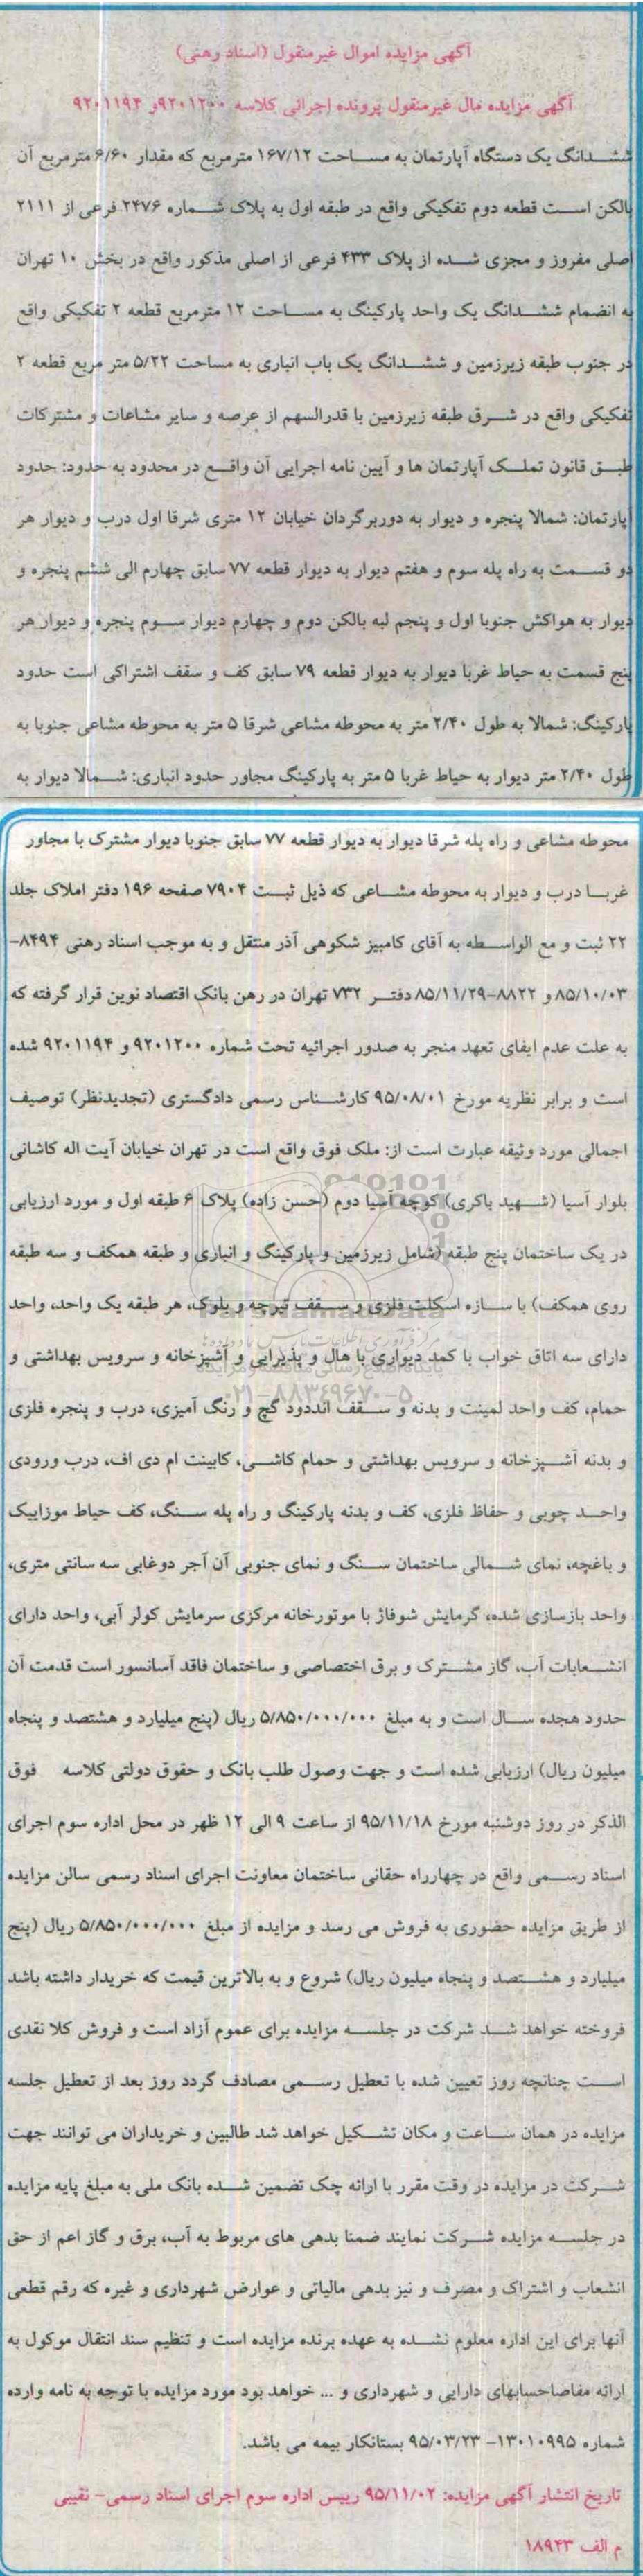 آگهی مزایده اموال غیرمنقول (اسناد رهنی)
آگهی مزایده مال غیرمنقول پرونده اجرائی کلاسه ۹۲۰۱۲۰۰و ۹۲۰۱۱۹۴
ششدانگ یک دستگاه آپارتمان به مساحت ۱۶۷/۱۲ مترمربع که مقدار ۶/۶۰ مترمربع آن
بالکن است قطعه دوم تفکیکی واقع در طبقه اول به پلاک شماره ۲۴۷۶ فرعی از ۲۱۱۱
اصلی مفروز و مجزی شده از پلاک ۴۳۳ فرعی از اصلی مذکور واقع در بخش ۱۰ تهران
به انضمام ششدانگ یک واحد پارکینگ به مساحت ۱۲ مترمربع قطعه ۲ تفکیکی واقع
در جنوب طبقه زیرزمین و ششدانگ یک باب انباری به مساحت ۵/۲۲ متر مربع قطعه ۲
تفکیکی واقع در شرق طبقه زیرزمین با قدرالسهم از عرصه و سایر مشاعات و مشترکات
طبق قانون تملک آپارتمان ها و آیین نامه اجرایی آن واقع در محدود به حدود: حدود
آپارتمان: شمالا پنجره و دیوار به دوربرگردان خیابان ۱۲ متری شرقا اول درب و دیوار هر
دو قسمت به راه پله سوم و هفتم دیوار به دیوار قطعه ۷۷ سابق چهارم الی ششم پنجره و
دیوار به هواکش جنوبا اول و پنجم لبه بالکن دوم و چهارم دیوار سوم پنجره و دیوار هر
پنج قسمت به حیاط غربا دیوار به دیوار قطعه ۷۹ سابق کف و سقف اشتراکی است حدود
پارکینگ: شمالا به طول ۲/۴۰ متر به محوطه مشاعی شرقا ۵ متر به محوطه مشاعی جنوبا به
طول ۲/۴۰ متر دیوار به حیاط غربا ۵ متر به پارکینگ مجاور حدود انباری: شمالا دیوار به
محوطه مشاعی و راه پله شرقا دیوار به دیوار قطعه ۷۷ سابق جنوبا دیوار مشترک با مجاور
غربا درب و دیوار به محوطه مشاعی که ذیل ثبت ۷۹۰۴ صفحه ۱۹۶ دفتر املاک جلد
۲۲ ثبت و مع الواسطه به آقای کامبیز شکوهی آذر منتقل و به موجب اسناد رهنی ۸۴۹۴-
۸۵/۱۰/۰۳ و ۸۸۲۲-۸۵/۱۱/۲۹ دفتر ۷۳۲ تهران در رهن بانک اقتصاد نوین قرار گرفته که
به علت عدم ایفای تعهد منجر به صدور اجرائیه تحت شماره ۹۲۰۱۲۰۰ و ۹۲۰۱۱۹۴ شده
است و برابر نظریه مورخ ۹۵/۰۸/۰۱ کارشناس رسمی دادگستری (تجدیدنظر) توصیف
اجمالی مورد وثیقه عبارت است از: ملک فوق واقع است در تهران خیابان آیت اله کاشانی
بلوار آسیا (شهید باکری) کوچه آسیا دوم (حسن زاده) پلاک ۶ طبقه اول و مورد ارزیابی
در یک ساختمان پنج طبقه (شامل زیرزمین و پارکینگ و انباری و طبقه همکف و سه طبقه
روی همکف) با سازه اسکلت فلزی و سقف تیرچه و بلوک، هر طبقه یک واحد، واحد
دارای سه اتاق خواب با کمد دیواری با هال و پذیرایی و آشپزخانه و سرویس بهداشتی و
حمام، کف واحد لمینت و بدنه و سقف انددود گچ و رنگ آمیزی، درب و پنجره فلزی
و بدنه آشپزخانه و سرویس بهداشتی و حمام کاشی، کابینت ام دی اف، درب ورودی
واحد چوبی و حفاظ فلزی، کف و بدنه پارکینگ و راه پله سنگ، کف حیاط موزاییک
و باغچه، نمای شمالی ساختمان سنگ و نمای جنوبی آن آجر دوغابی سه سانتی متری،
واحد بازسازی شده، گرمایش شوفاژ با موتورخانه مرکزی سرمایش کولر آبی، واحد دارای
انشعابات آب، گاز مشترک و برق اختصاصی و ساختمان فاقد آسانسور است قدمت آن
حدود هجده سال است و به مبلغ ۵/۸۵۰/۰۰۰/۰۰۰ ریال (پنج میلیارد و هشتصد و پنجاه
میلیون ریال) ارزیابی شده است و جهت وصول طلب بانک و حقوق دولتی کلاسه فوق
الذکر در روز دوشنبه مورخ ۹۵/۱۱/۱۸ از ساعت ۹ الی ۱۲ ظهر در محل اداره سوم اجرای
اسناد رسمی واقع در چهارراه حقانی ساختمان معاونت اجرای اسناد رسمی سالن مزایده
از طریق مزایده حضوری به فروش می رسد و مزایده از مبلغ ۵/۸۵۰/۰۰۰/۰۰۰ ریال (پنج
میلیارد و هشتصد و پنجاه میلیون ریال) شروع و به بالاترین قیمت که خریدار داشته باشد
فروخته خواهد شد شرکت در جلسه مزایده برای عموم آزاد است و فروش کلا نقدی
است چنانچه روز تعیین شده با تعطیل رسمی مصادف گردد روز بعد از تعطیل جلسه
مزایده در همان ساعت و مکان تشکیل خواهد شد طالبین و خریداران می توانند جهت
شرکت در مزایده در وقت مقرر با ارائه چک تضمین شده بانک ملی به مبلغ پایه مزایده
در جلسه مزایده شرکت نمایند ضمنا بدهی های مربوط به آب، برق و گاز اعم از حق
انشعاب و اشتراک و مصرف و نیز بدهی مالیاتی و عوارض شهرداری و غیره که رقم قطعی
آنها برای این اداره معلوم نشده به عهده برنده مزایده است و تنظیم سند انتقال موکول به
ارائه مفاصاحسابهای دارایی و شهرداری و ... خواهد بود مورد مزایده با توجه به نامه وارده
شماره ۱۳۰۱۰۹۹۵- ۹۵/۰۳/۲۳ بستانکار بیمه می باشد.
تاریخ انتشار آگهی مزایده: ۹۵/۱۱/۰۲ رییس اداره سوم اجرای اسناد رسمی- نقیبی
م الف ۱۸۹۴۳